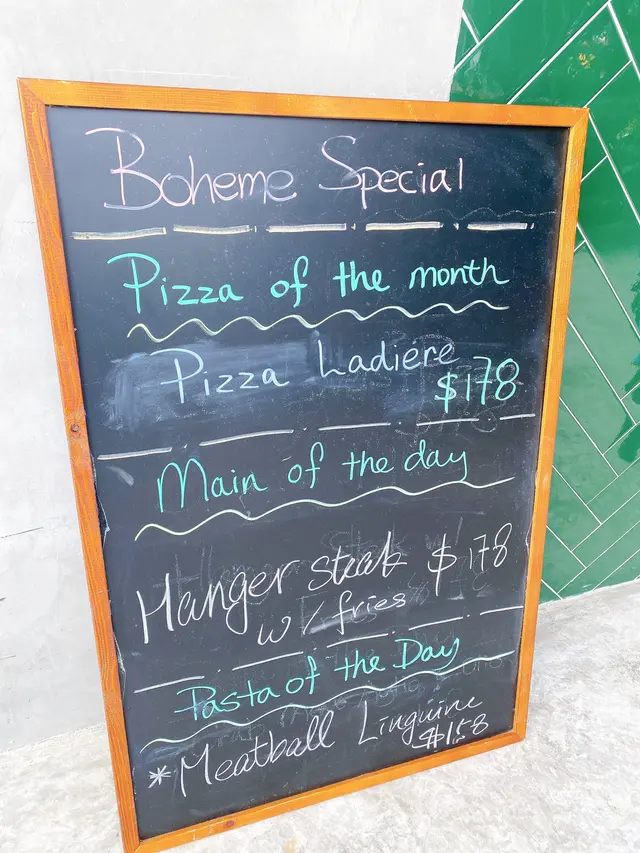 Boheme Special
Pizza of the month
Pizza Ladiere
$178
Main of the day
Hanger steak $178
w/ fries
Pasta of the Day
*Meatball Linguine
$158